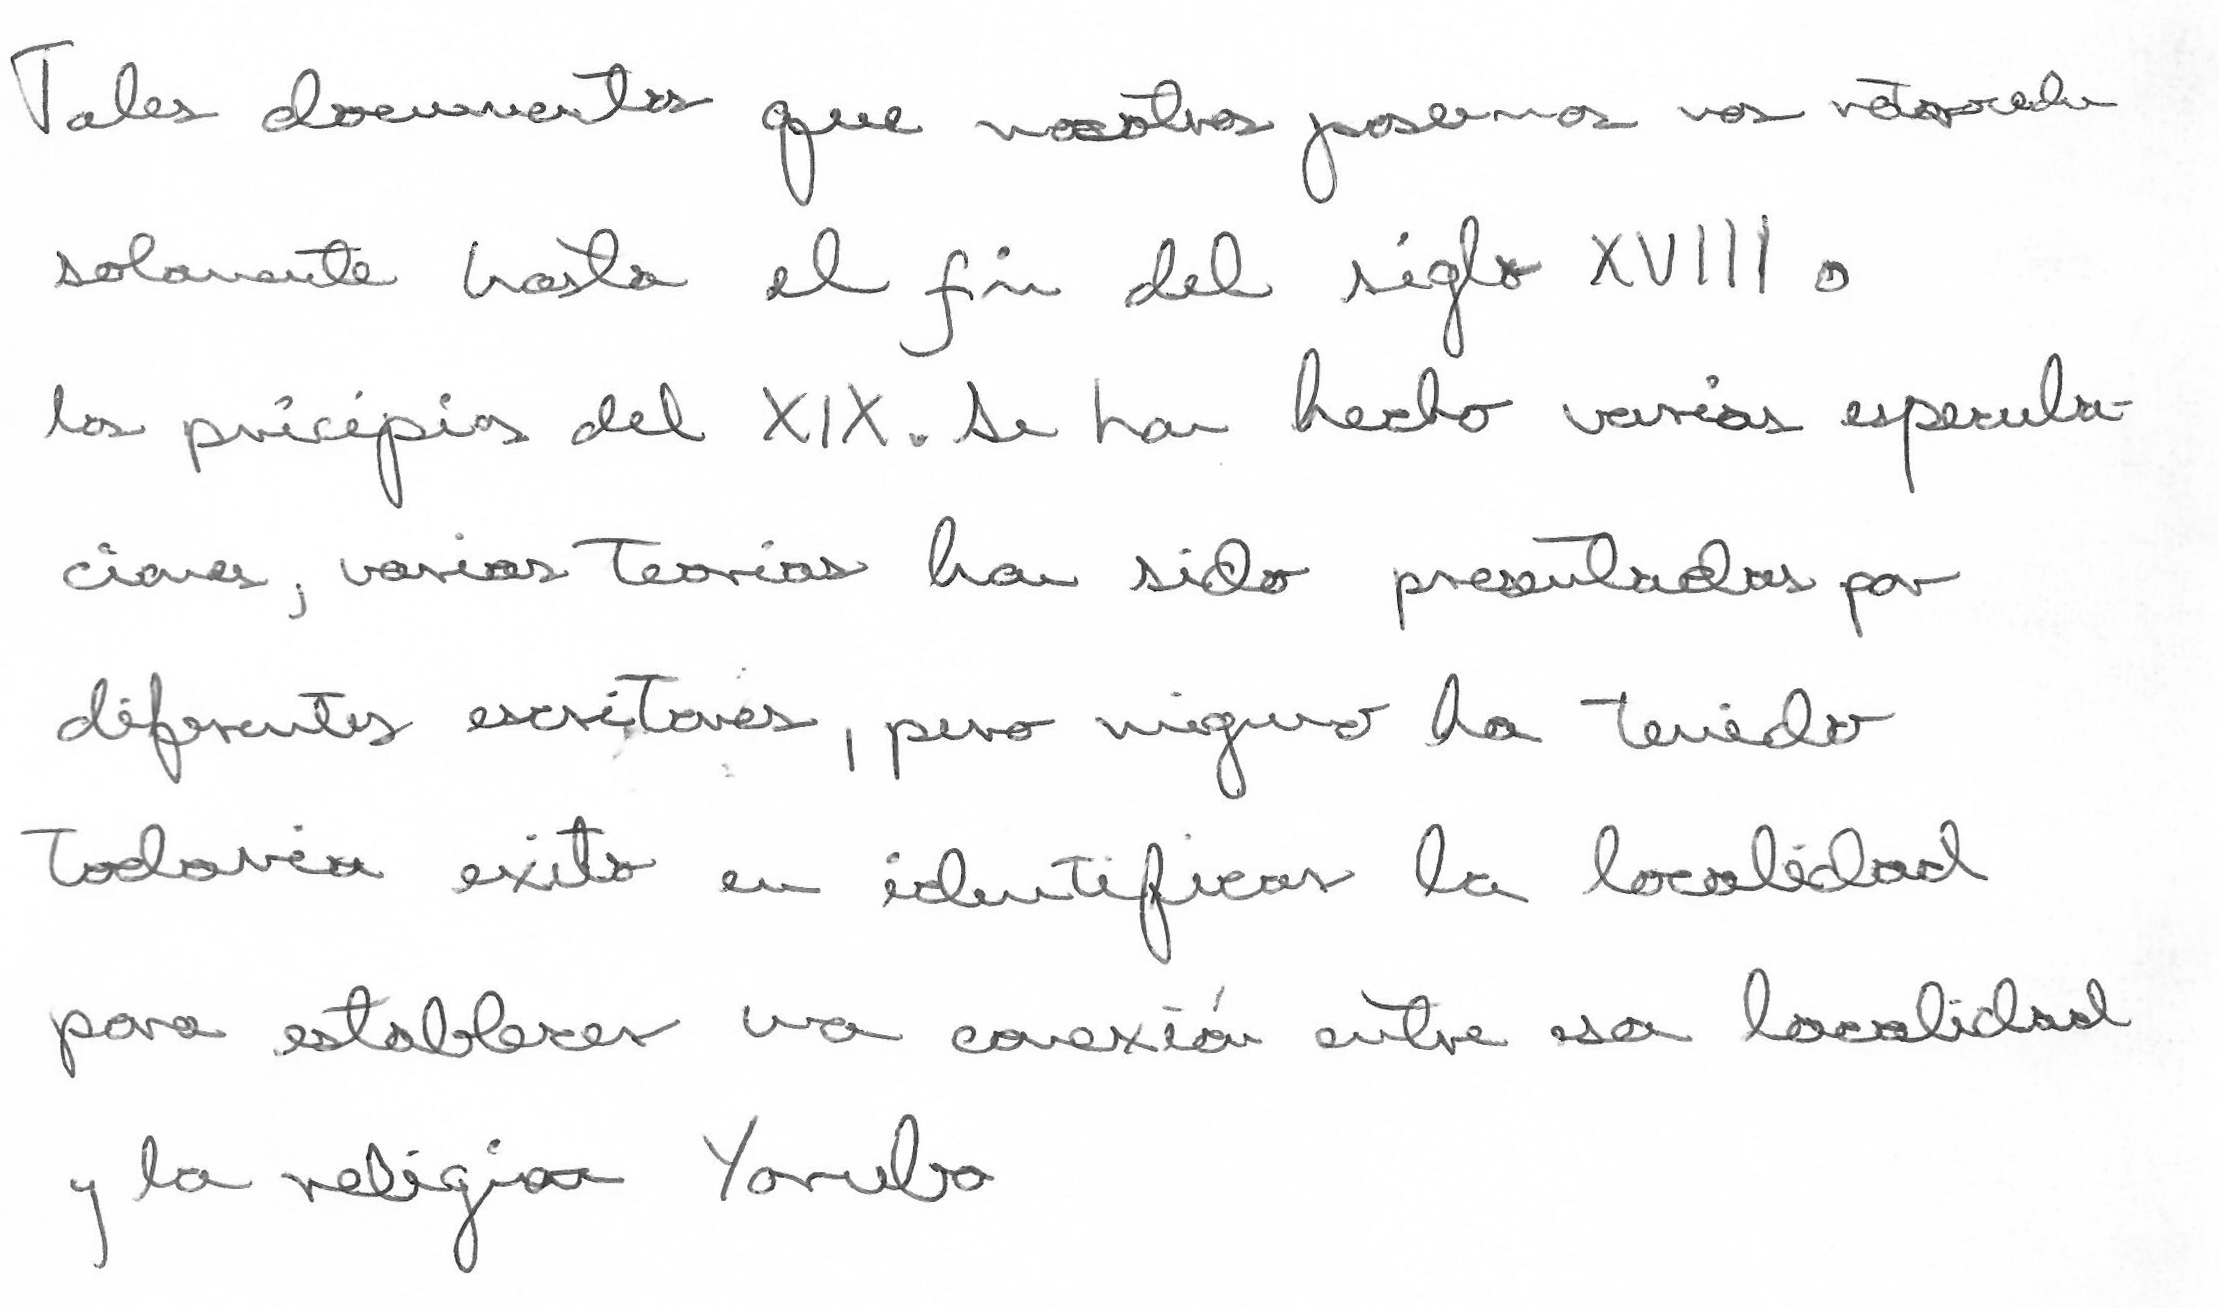 Tales documentos que nosotros poseemos nos retroceden
solamente hasta el fin del siglo XVIII o
los pricipios del XIX. Se han hecho varias especula-
ciones, varias teorias han sido presentadas por
diferentes escritores, pero niguno ha tenido
todavia exito en identificar la localidad
para establecer una conexión entre esa localidad
y la religion Yoruba